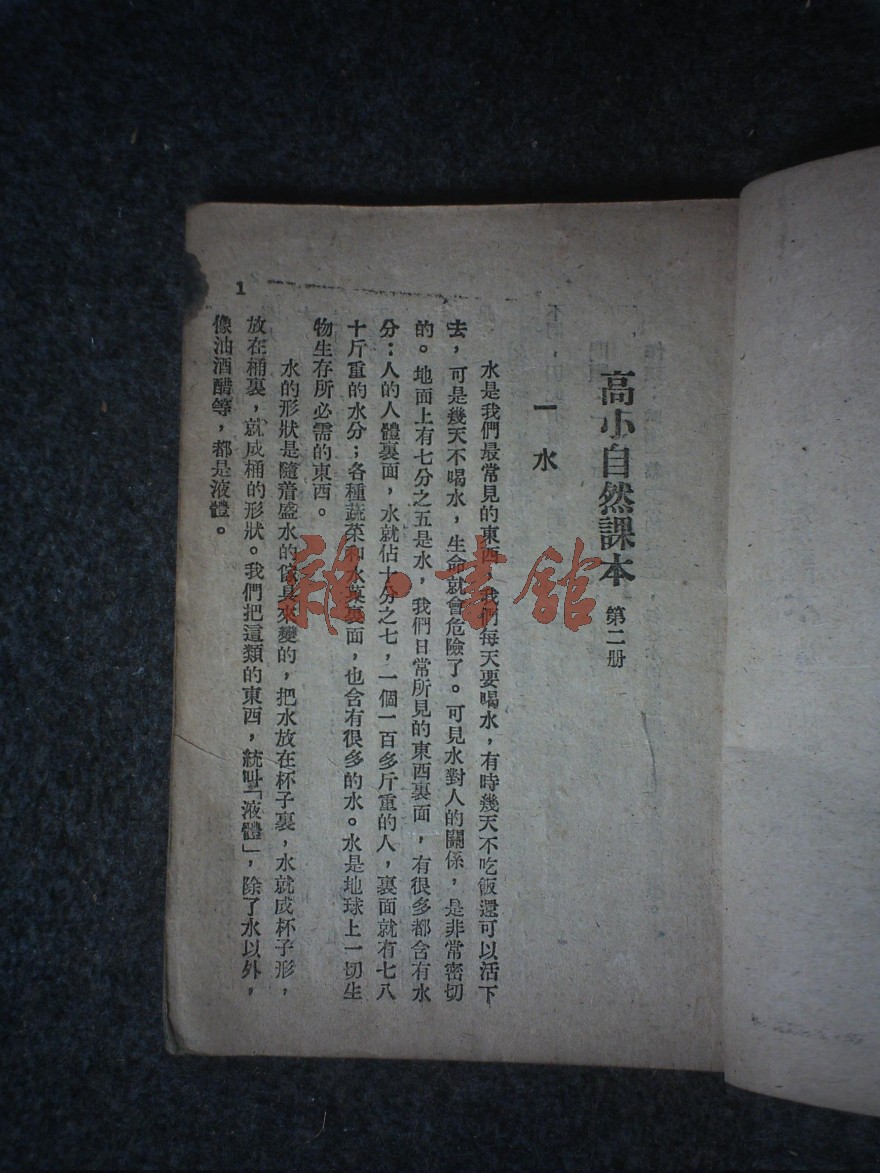 高小自然課本 第二册
一 水
水是我們最常見的東西，我們每天要喝水，有時幾天不吃飯還可以活下
去，可是幾天不喝水，生命就會危險了。可見水對人的關係，是非常密切
的。地面上有七分之五是水，我們日常所見的東西裏面，有很多都含有水
分：人的人體裏面，水就佔十分之七，一個一百多斤重的人，裏面就有七八
十斤重的水分；各種蔬菜和水菓裏面，也含有很多的水。水是地球上一切生
物生存所必需的東西。
水的形狀是隨着盛水的傢具來變的，把水放在杯子裏，水就成杯子形，
放在桶裏，就成桶的形狀。我們把這類的東西，統叫「液體」，除了水以外，
像油酒醋等，都是液體。
1
雜·書館